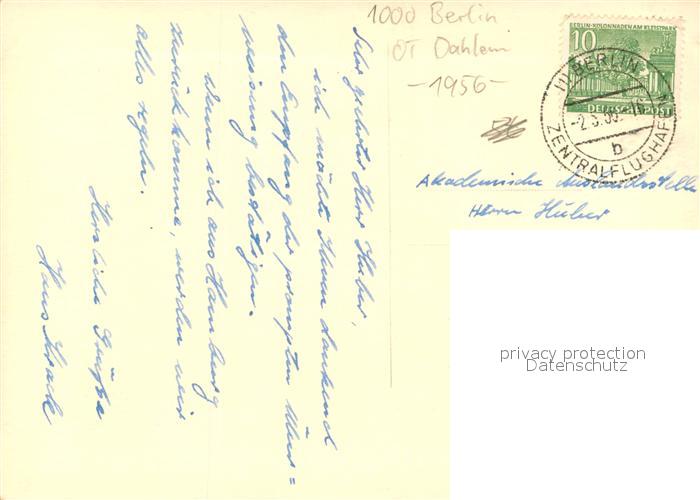 1000 Berlin
OT Dahlem
-1956-
BERLIN-KOLONNADEN AM KLEISTPARK
10
DEUTSCHE POST
BERLIN
ZENTRALFLUGHAFEN
b
Akademische
Herrn Huber
privacy protection
Datenschutz
Sehr geehrter Herr Huber,
ich möchte Ihnen dankend
den Empfang der prompten Über=
weisung bestätigen.
Wenn ich aus Hamburg
zurück komme, werden wir
alles regeln.
Herzliche Grüße
Hans